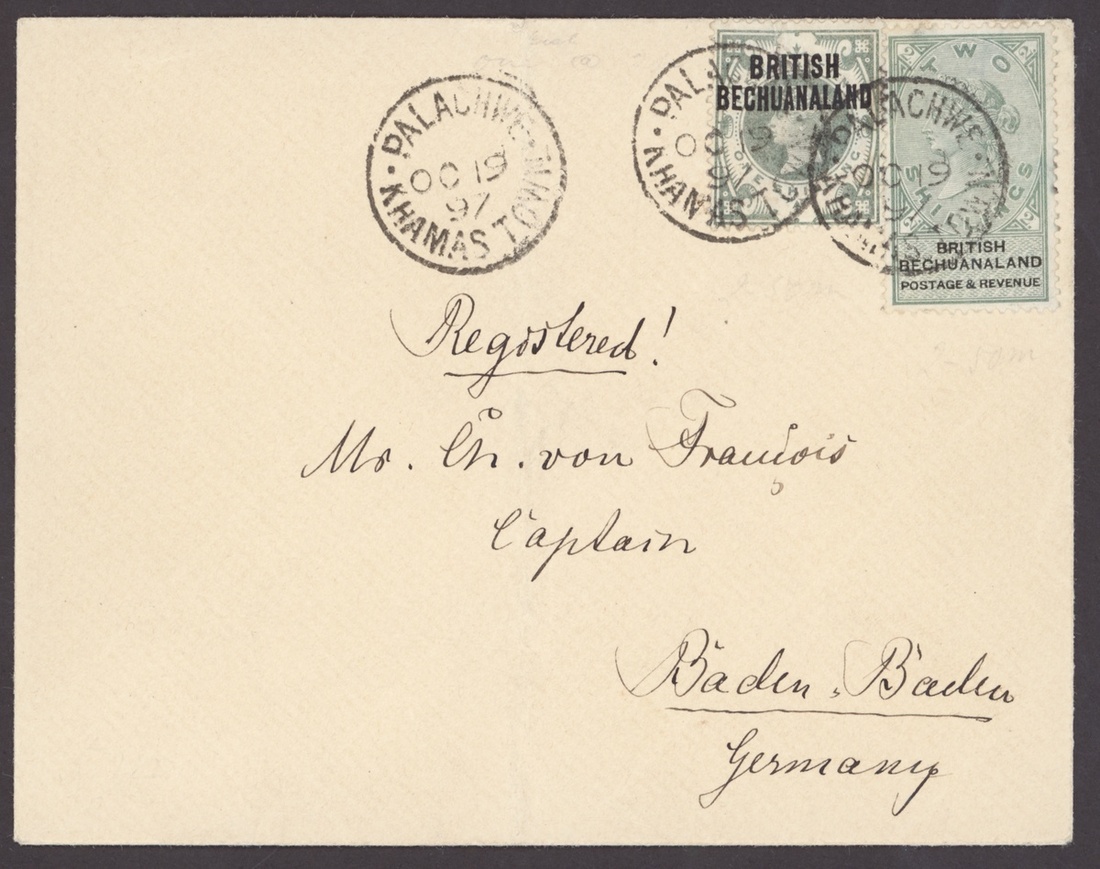 PALACHWE · KHAMAS TOWN ·
OC 19
97
BRITISH
BECHUANALAND
ONE SHILLING
PALACHWE · KHAMAS TOWN ·
OC 19
97
TWO
SHILLINGS
BRITISH
BECHUANALAND
POSTAGE & REVENUE
PALACHWE · KHAMAS TOWN ·
OC 19
97
Registered!
Mr. Ch. von François
Captain
Baden-Baden
Germany